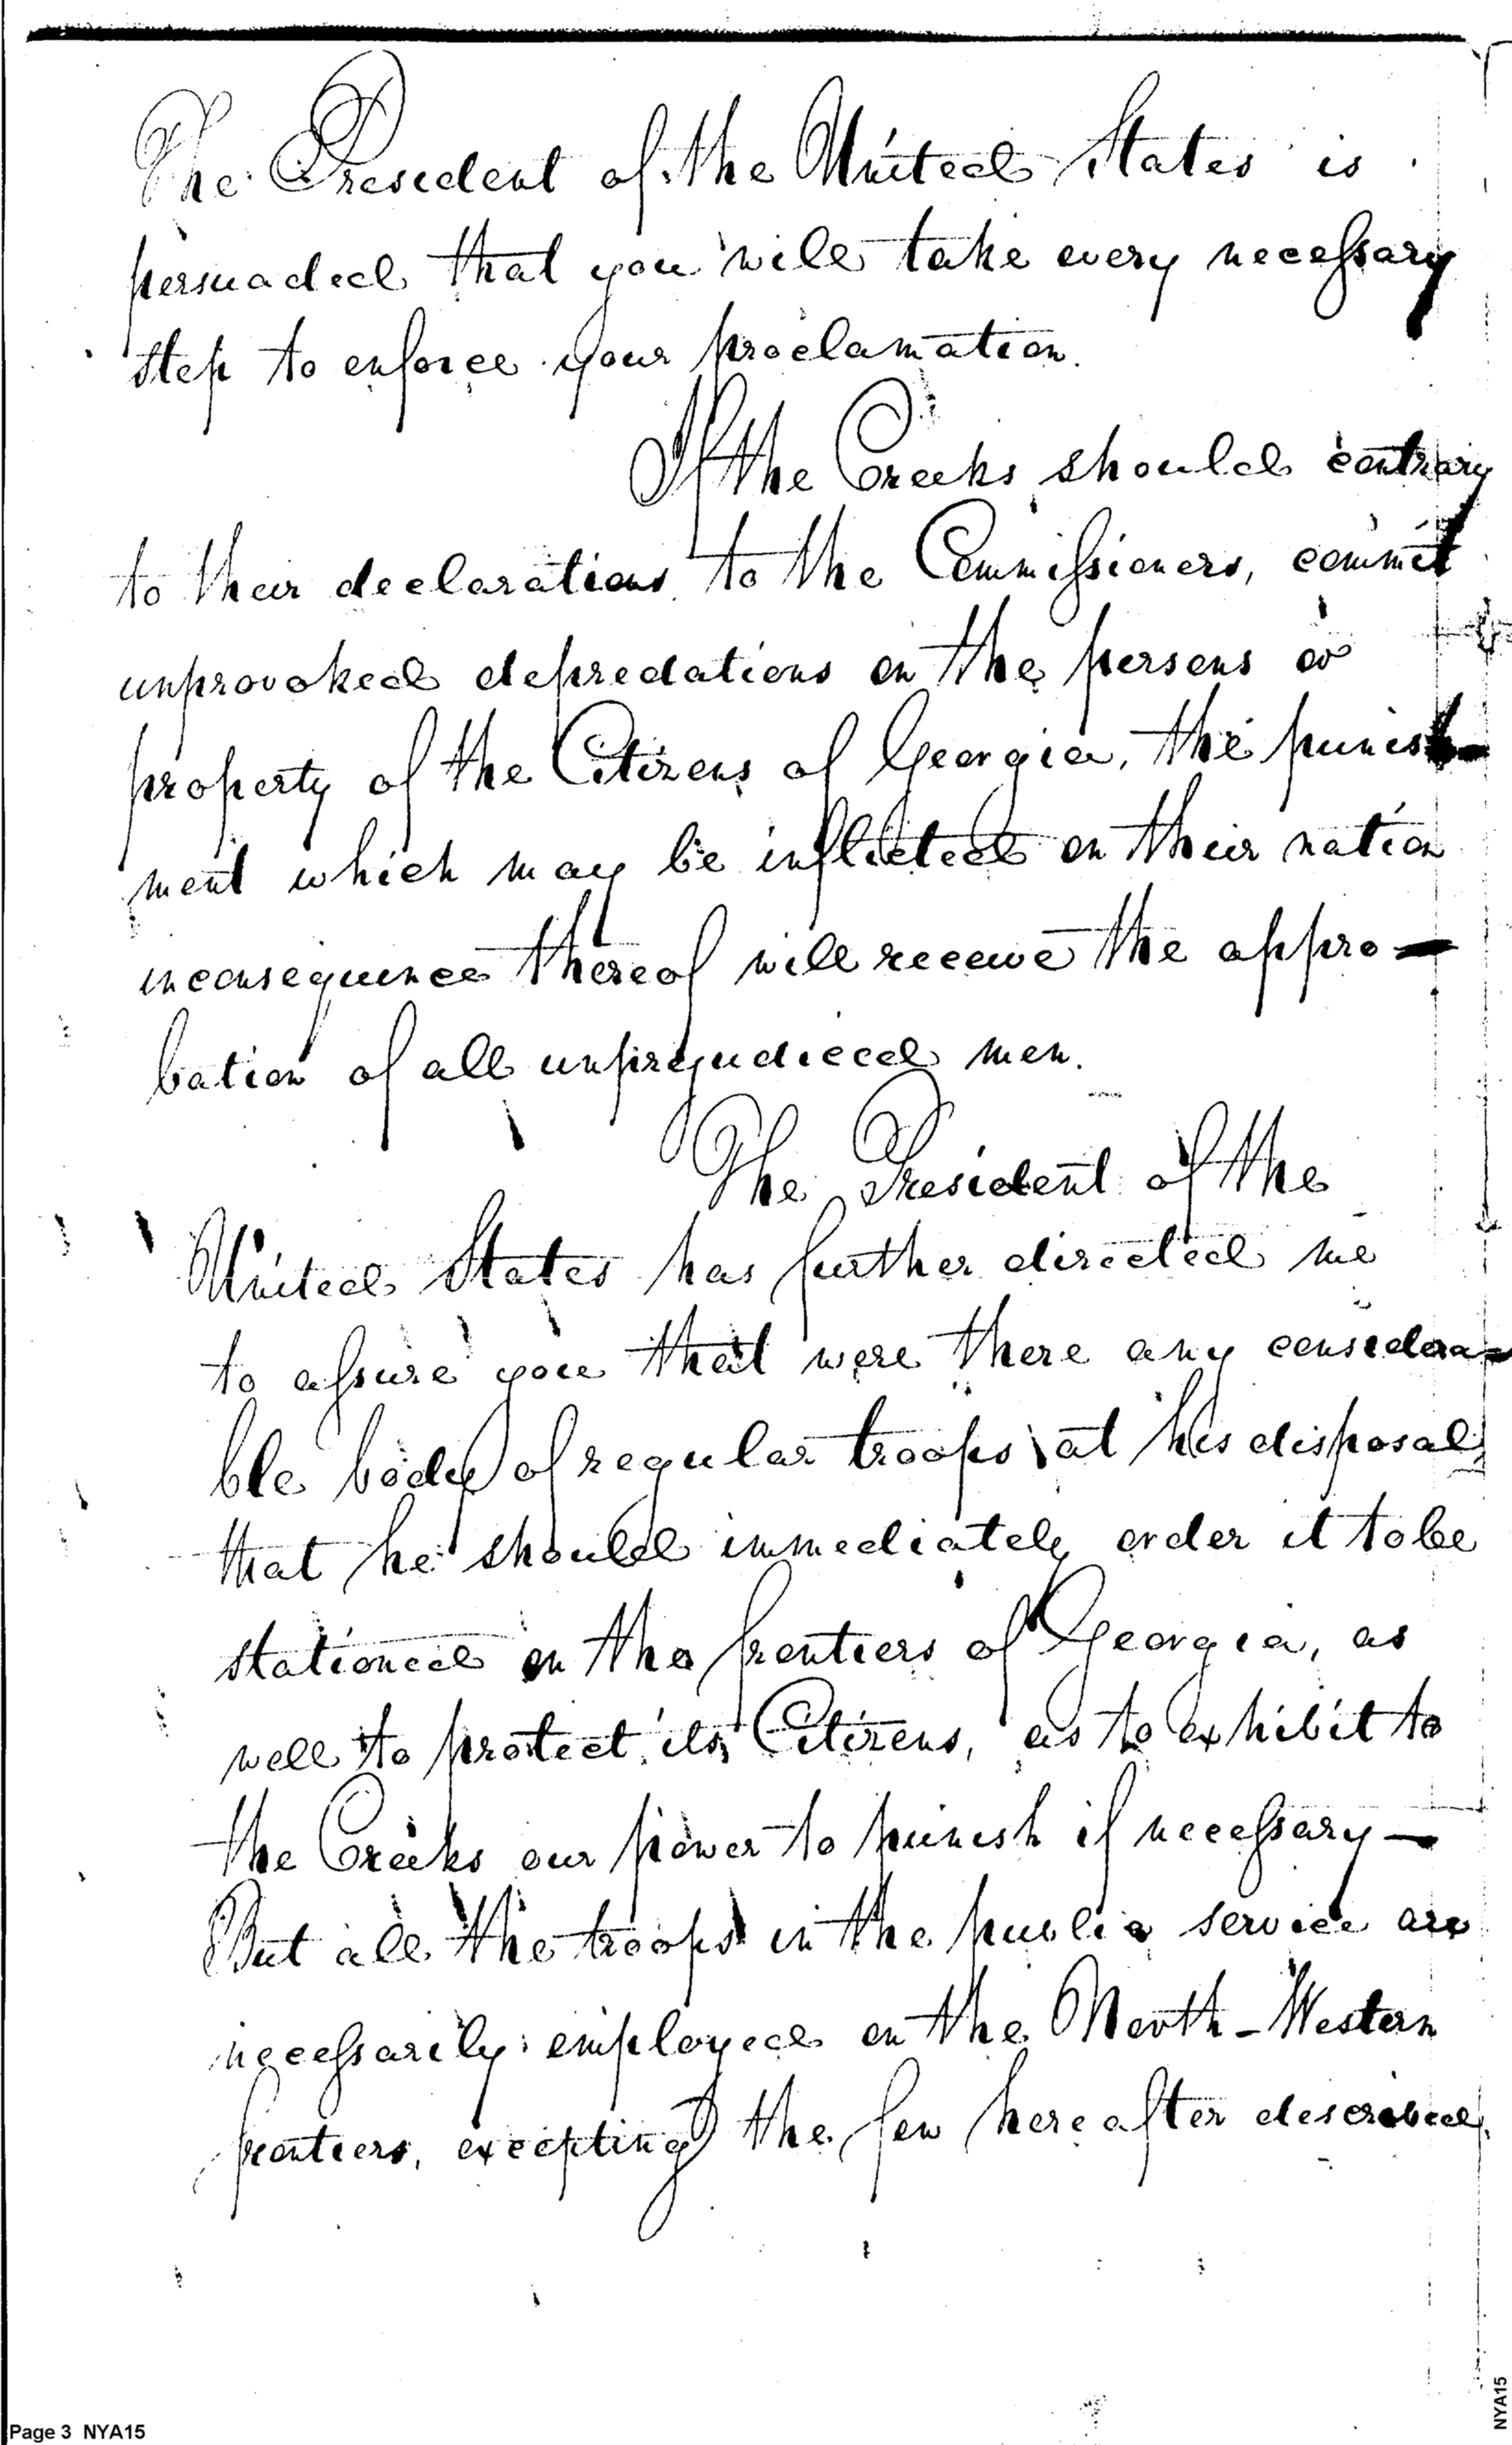 The President of the United States is
persuaded that you will take every necessary
step to enforce your proclamation.
If the Creeks should contrary
to their declarations to the Commissioners, commit
unprovoked depredations on the persons or
property of the Citizens of Georgia, the punish-
ment which may be inflicted on their nation
inconsequence thereof will receive the appro-
bation of all unprejudiced men.
The President of the
United States has further directed me
to assure you that were there any considera-
ble body of regular troops at his disposal,
that he should immediately order it to be
stationed on the frontiers of Georgia, as
well to protect its Citizens, as to exhibit to
the Creeks our power to punish if necessary—
But all the troops in the public service are
necessarily employed on the North-Western
frontiers, excepting the few hereafter described.
Page 3 NYA15
NYA15